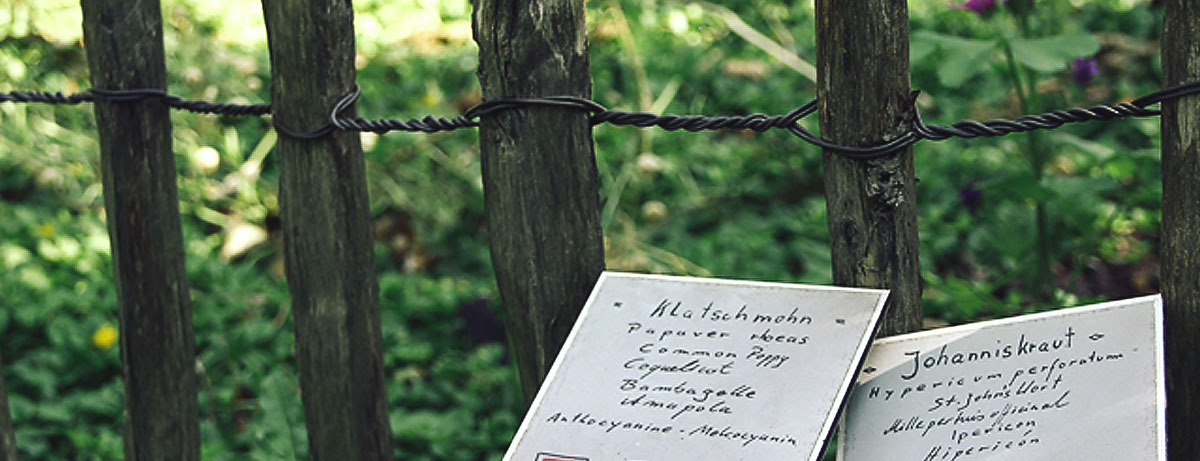 Klatschmohn
Papaver rhoeas
Common Poppy
Coquelicot
Bambagella
Amapola
Anthocyanine - Mekocyanin
Johanniskraut
Hypericum perforatum
St. John's Wort
Millepertuis officinal
Ipericon
Hipericón